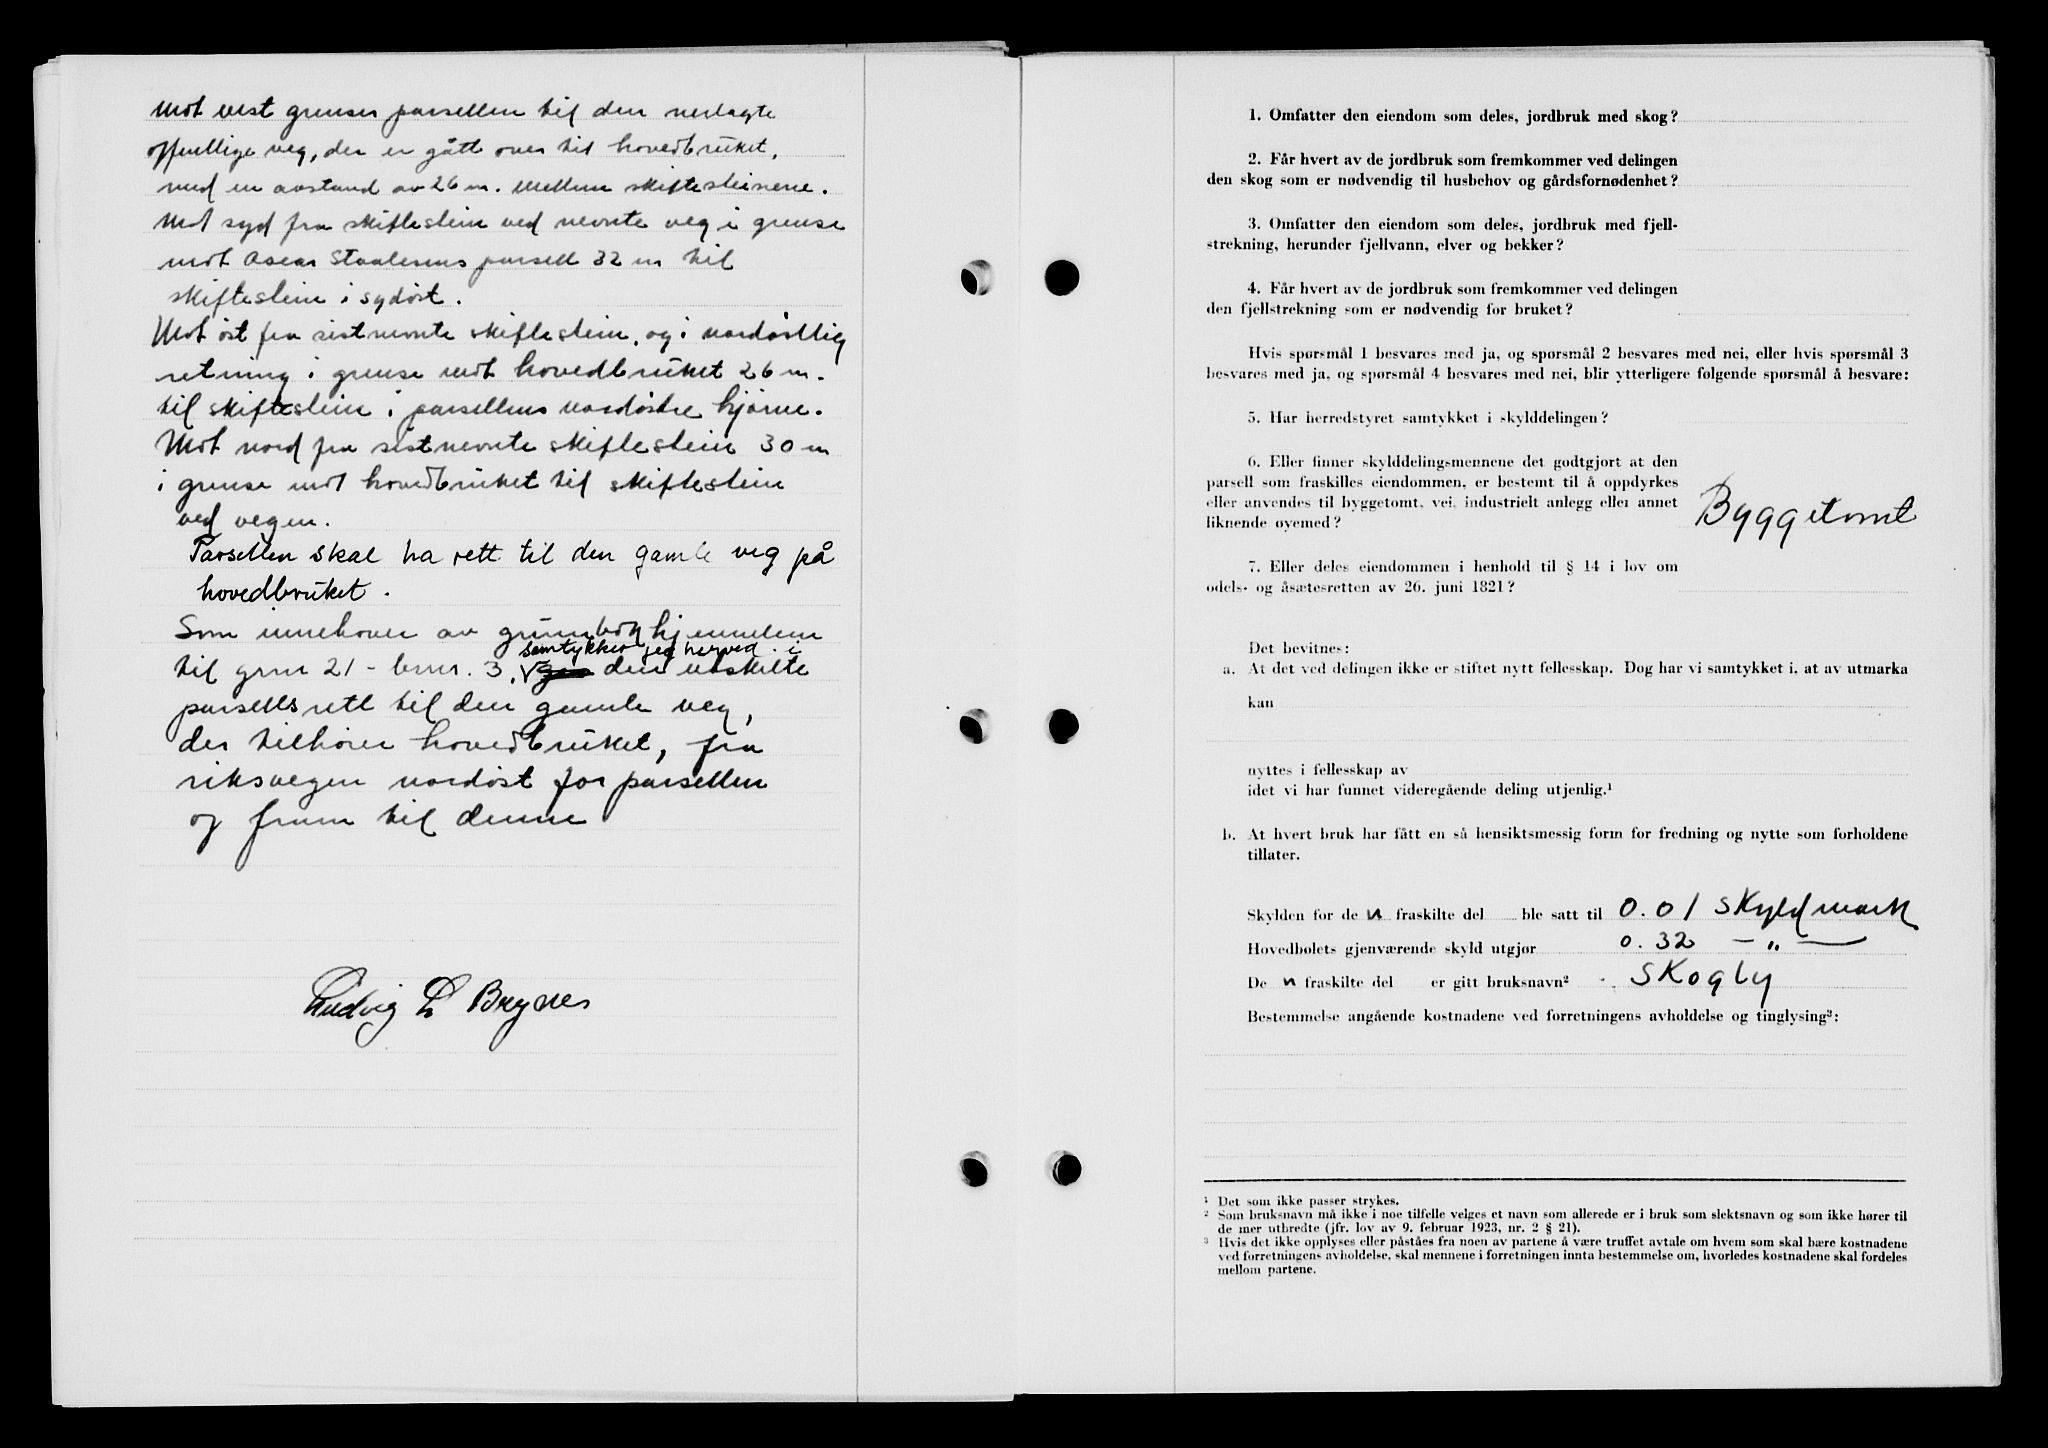 Mot vest grenser parsellen til den nedlagte
offentlige veg, der er gått over til hovedbruket,
med en avstand av 26 m. mellem skiftesteinene.
Mot syd fra skiftestein ved nevnte veg i grense
mot Oscar Staalesens parsell 32 m til
skiftestein i sydöst.
Mot öst fra sistnevnte skiftestein, og i nordöstlig
retning i grense mot hovedbruket 26 m.
til skiftestein i parsellens nordöstre hjörne.
Mot nord fra sistnevnte skiftestein 30 m
i grense mot hovedbruket til skiftestein
ved vegen.
Parsellen skal ha rett til den gamle veg på
hovedbruket.
Som innehaver av grunnbokhjemmelen
samtykker jeg herved i
til grnr 21 - brnr. 3, den utskilte
parsells rett til den gamle veg,
der tilhörer hovedbruket, fra
riksvegen nordöst for parsellen
og fram til denne
Ludvig L Brynes
1. Omfatter den eiendom som deles, jordbruk med skog?
2. Får hvert av de jordbruk som fremkommer ved delingen
den skog som er nødvendig til husbehov og gårdsfornødenhet?
3. Omfatter den eiendom som deles, jordbruk med fjell-
strekning, herunder fjellvann, elver og bekker?
4. Får hvert av de jordbruk som fremkommer ved delingen
den fjellstrekning som er nødvendig for bruket?
Hvis spørsmål 1 besvares med ja, og spørsmål 2 besvares med nei, eller hvis spørsmål 3
besvares med ja, og spørsmål 4 besvares med nei, blir ytterligere følgende spørsmål å besvare:
5. Har herredstyret samtykket i skylddelingen?
6. Eller finner skylddelingsmennene det godtgjort at den
parsell som fraskilles eiendommen, er bestemt til å oppdyrkes
eller anvendes til byggetomt, vei, industrielt anlegg eller annet
liknende øyemed? Byggetomt
7. Eller deles eiendommen i henhold til § 14 i lov om
odels- og åsætesretten av 26. juni 1821?
Det bevitnes:
a. At det ved delingen ikke er stiftet nytt fellesskap. Dog har vi samtykket i, at av utmarka
kan
nyttes i fellesskap av
idet vi har funnet videregående deling utjenlig.¹
b. At hvert bruk har fått en så hensiktsmessig form for fredning og nytte som forholdene
tillater.
Skylden for de n fraskilte del ble satt til 0.01 skyldmark
Hovedbølets gjenværende skyld utgjør 0.32 — „ —
De n fraskilte del er gitt bruksnavn² Skogly
Bestemmelse angående kostnadene ved forretningens avholdelse og tinglysing³:
¹ Det som ikke passer strykes.
² Som bruksnavn må ikke i noe tilfelle velges et navn som allerede er i bruk som slektsnavn og som ikke hører til
de mer utbredte (jfr. lov av 9. februar 1923, nr. 2 § 21).
³ Hvis det ikke opplyses eller påståes fra noen av partene å være truffet avtale om hvem som skal bære kostnadene
ved forretningens avholdelse, skal mennene i forretningen innta bestemmelse om, hvorledes kostnadene skal fordeles
mellom partene.